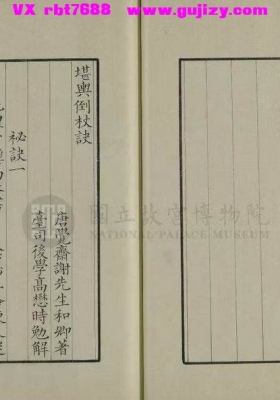 VX rbt7688 www.gujizy.com
堪輿倒杖訣
唐覺齋謝先生和卿著
臺司後學高懋時勉解
秘訣一
國立故宮博物院
NATIONAL PALACE MUSEUM